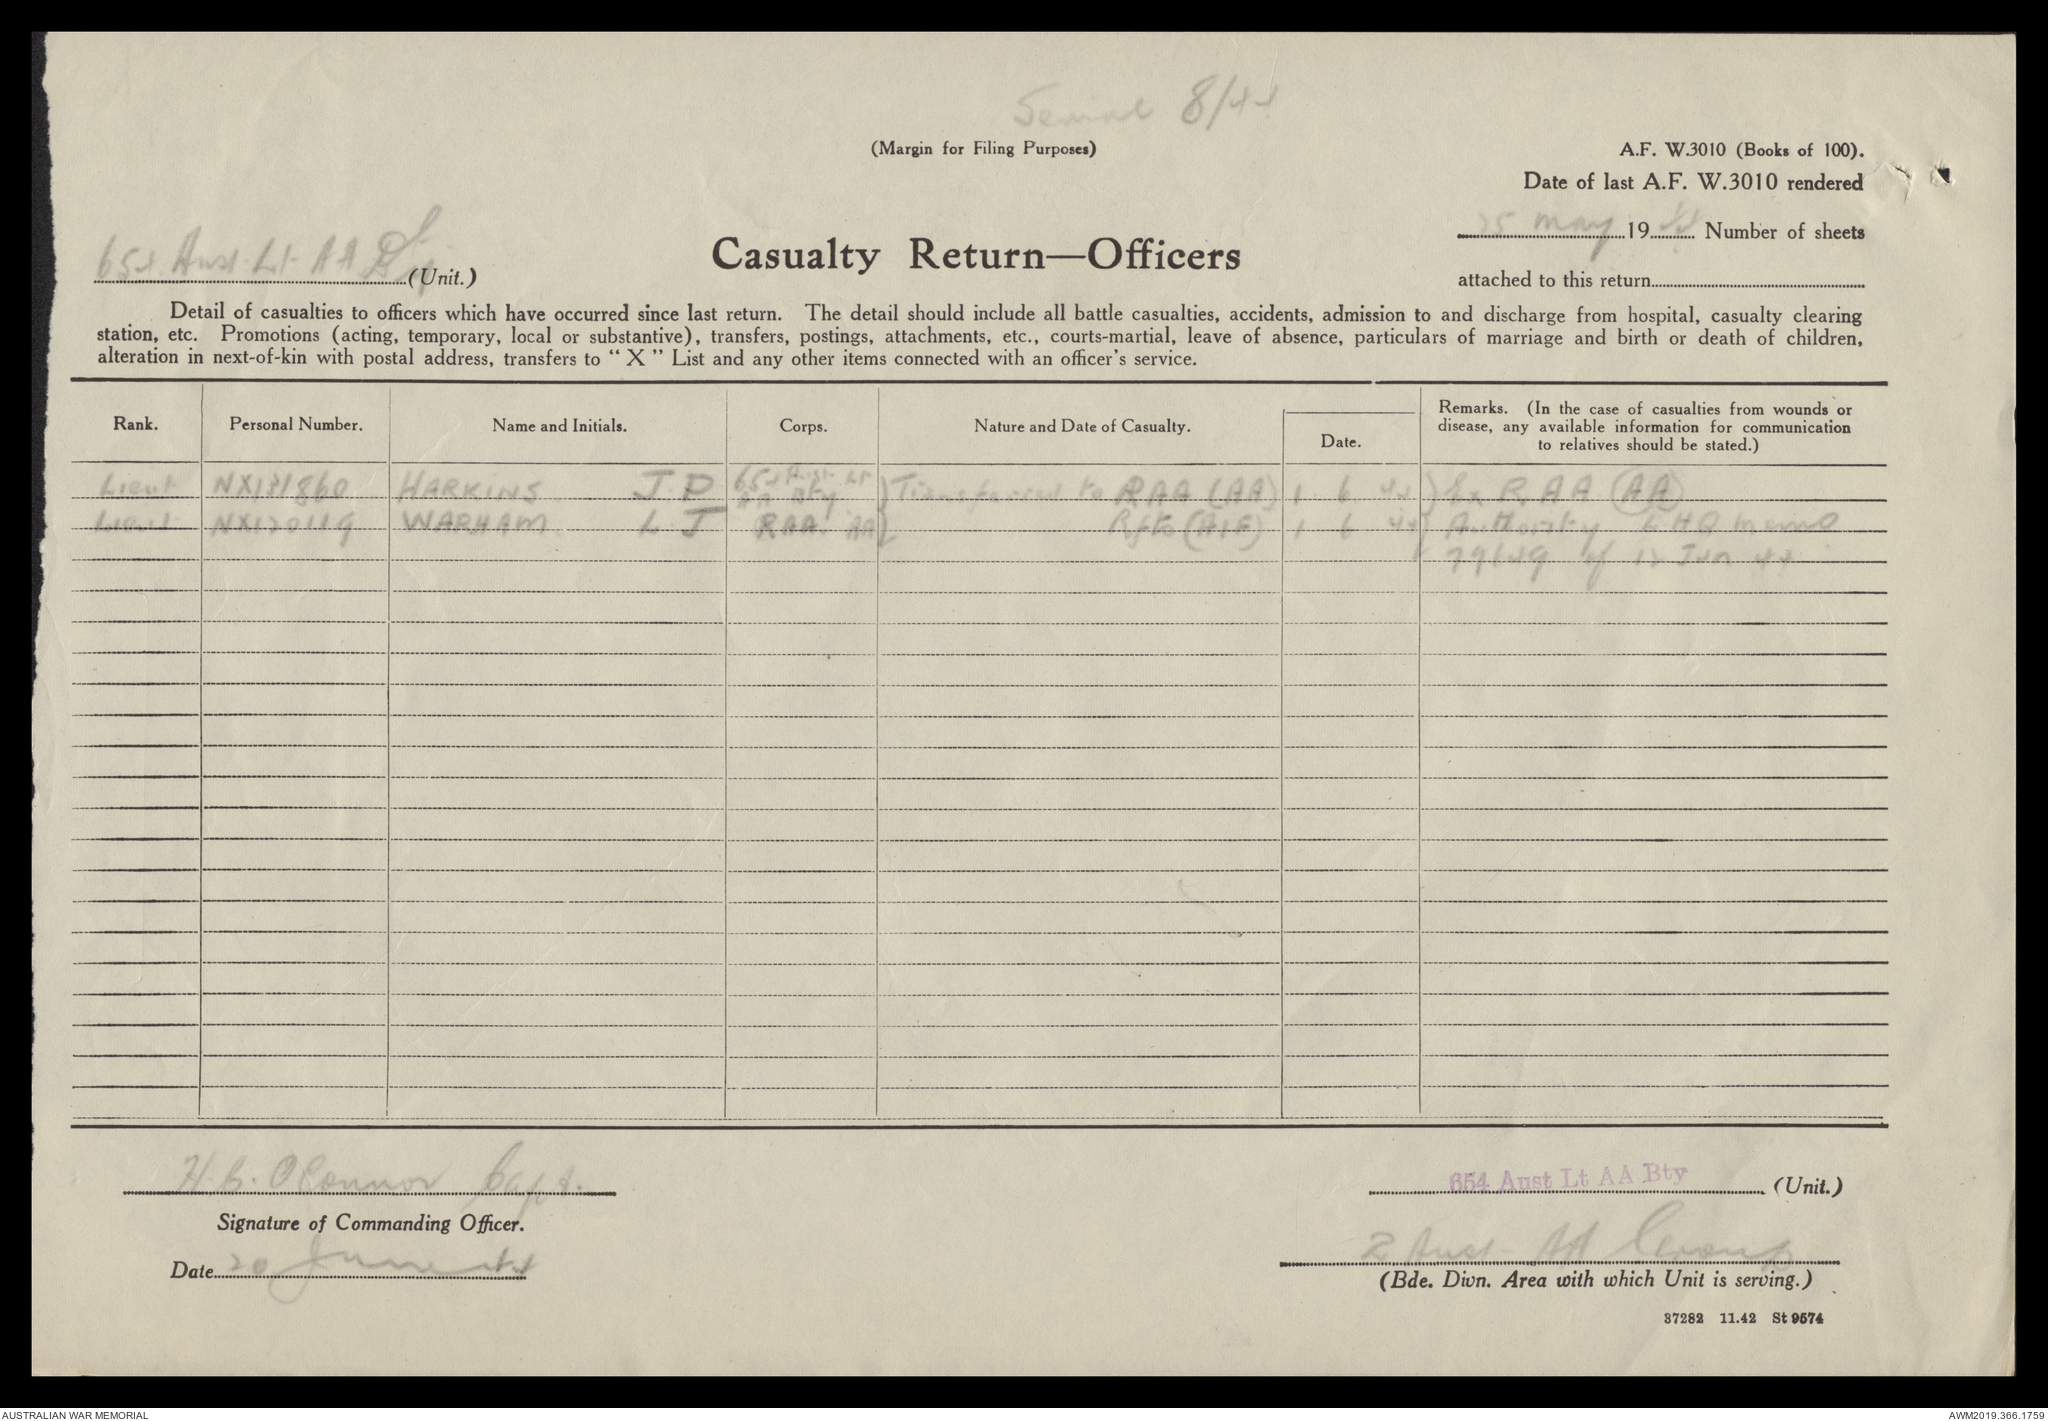 Serial 8/44
(Margin for Filing Purposes)
A.F. W.3010 (Books of 100).
Date of last A.F. W.3010 rendered
25 May 1944 Number of sheets
attached to this return
654 Aust Lt AA Bty (Unit.)
Casualty Return—Officers
Detail of casualties to officers which have occurred since last return. The detail should include all battle casualties, accidents, admission to and discharge from hospital, casualty clearing
station, etc. Promotions (acting, temporary, local or substantive), transfers, postings, attachments, etc., courts-martial, leave of absence, particulars of marriage and birth or death of children,
alteration in next-of-kin with postal address, transfers to “X” List and any other items connected with an officer's service.
Rank. Personal Number. Name and Initials. Corps. Nature and Date of Casualty. Date. Remarks. (In the case of casualties from wounds or
disease, any available information for communication
to relatives should be stated.)
Lieut NX131860 HARKINS J.P 654 Aust Lt AA Bty Transferred to RAA (AA) 1 6 44 Ex RAA (AA)
Lieut NX120119 WARHAM L J RAA AA Rfts (AIF) 1 6 44 Authority LHQ memo
79649 of 12 Jun 44
H.C. O'Connor Capt.
Signature of Commanding Officer.
Date 20 June 44
654 Aust Lt AA Bty (Unit.)
2 Aust AA Group
(Bde. Divn. Area with which Unit is serving.)
37282 11.42 St 9574
AUSTRALIAN WAR MEMORIAL
AWM2019.366.1759